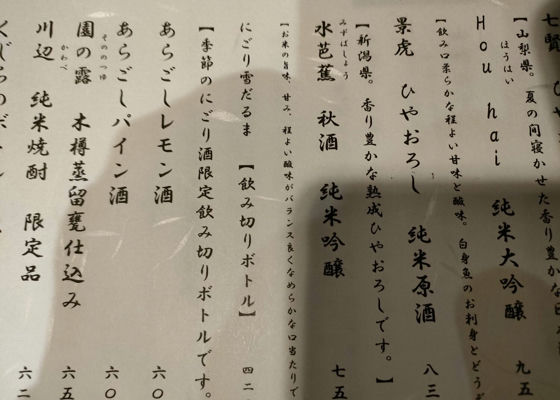 七賢 ひや
【山梨県。夏の間寝かせた香り豊かなひ
ほうはい
Hou hai 純米大吟醸 九五
【飲み口柔らかな程よい甘味と酸味。白身魚のお刺身とどうぞ
景虎 ひやおろし 純米原酒 八三
【新潟県。香り豊かな熟成ひやおろしです。】
みずばしょう
水芭蕉 秋酒 純米吟醸 七五
【お米の旨味、甘み、程よい酸味がバランス良くなめらかな口当たりで
にごり雪だるま 【飲み切りボトル】 四二
【季節のにごり酒限定飲み切りボトルです。
あらごしレモン酒 六〇
あらごしパイン酒 六〇
そののつゆ
園の露 木樽蒸留甕仕込み 六五
かわべ
川辺 純米焼酎 限定品 六二
くじらのボトル